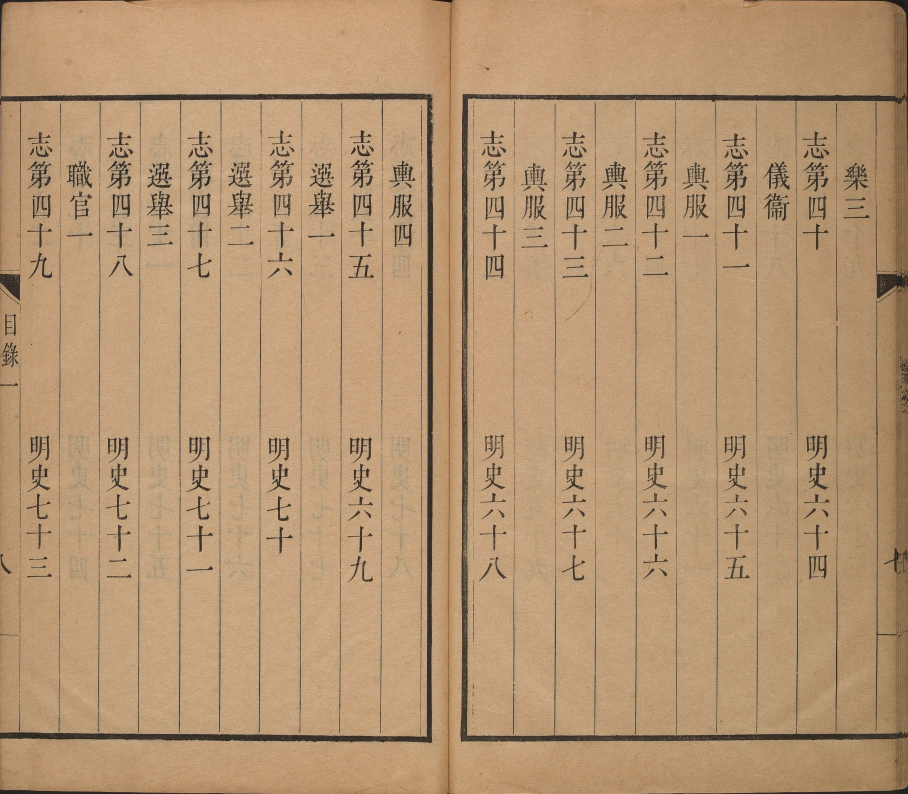 樂三
志第四十 明史六十四
儀衞
志第四十一 明史六十五
輿服一
志第四十二 明史六十六
輿服二
志第四十三 明史六十七
輿服三
志第四十四 明史六十八
七
輿服四
志第四十五 明史六十九
選舉一
志第四十六 明史七十
選舉二
志第四十七 明史七十一
選舉三
志第四十八 明史七十二
職官一
志第四十九 明史七十三
目錄一
八